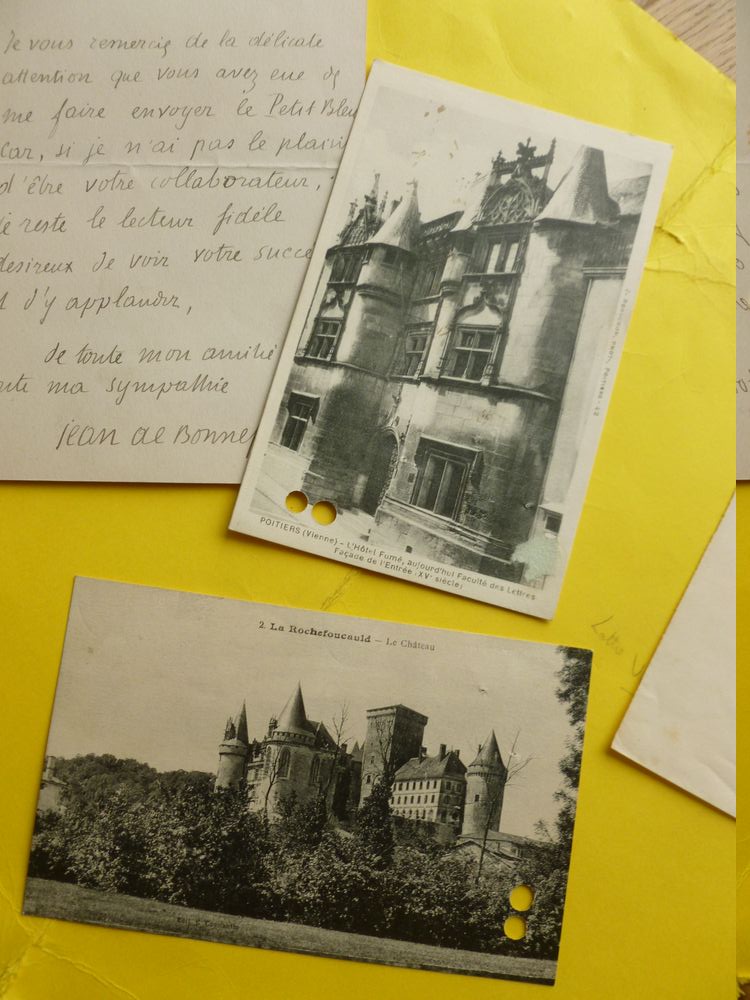 Je vous remercie de la délicate
attention que vous avez eue de
me faire envoyer le Petit Bleu
car, si je n'ai pas le plaisi
d'être votre collaborateur,
je reste le lecteur fidèle
desireux de voir votre succe
d'y applaudir,
de toute mon amitié
ma sympathie
Jean de Bonne
POITIERS (Vienne) - L'Hôtel Fumé, aujourd'hui Faculté des Lettres
Façade de l'Entrée (XVe siècle)
2. La Rochefoucauld - Le Château